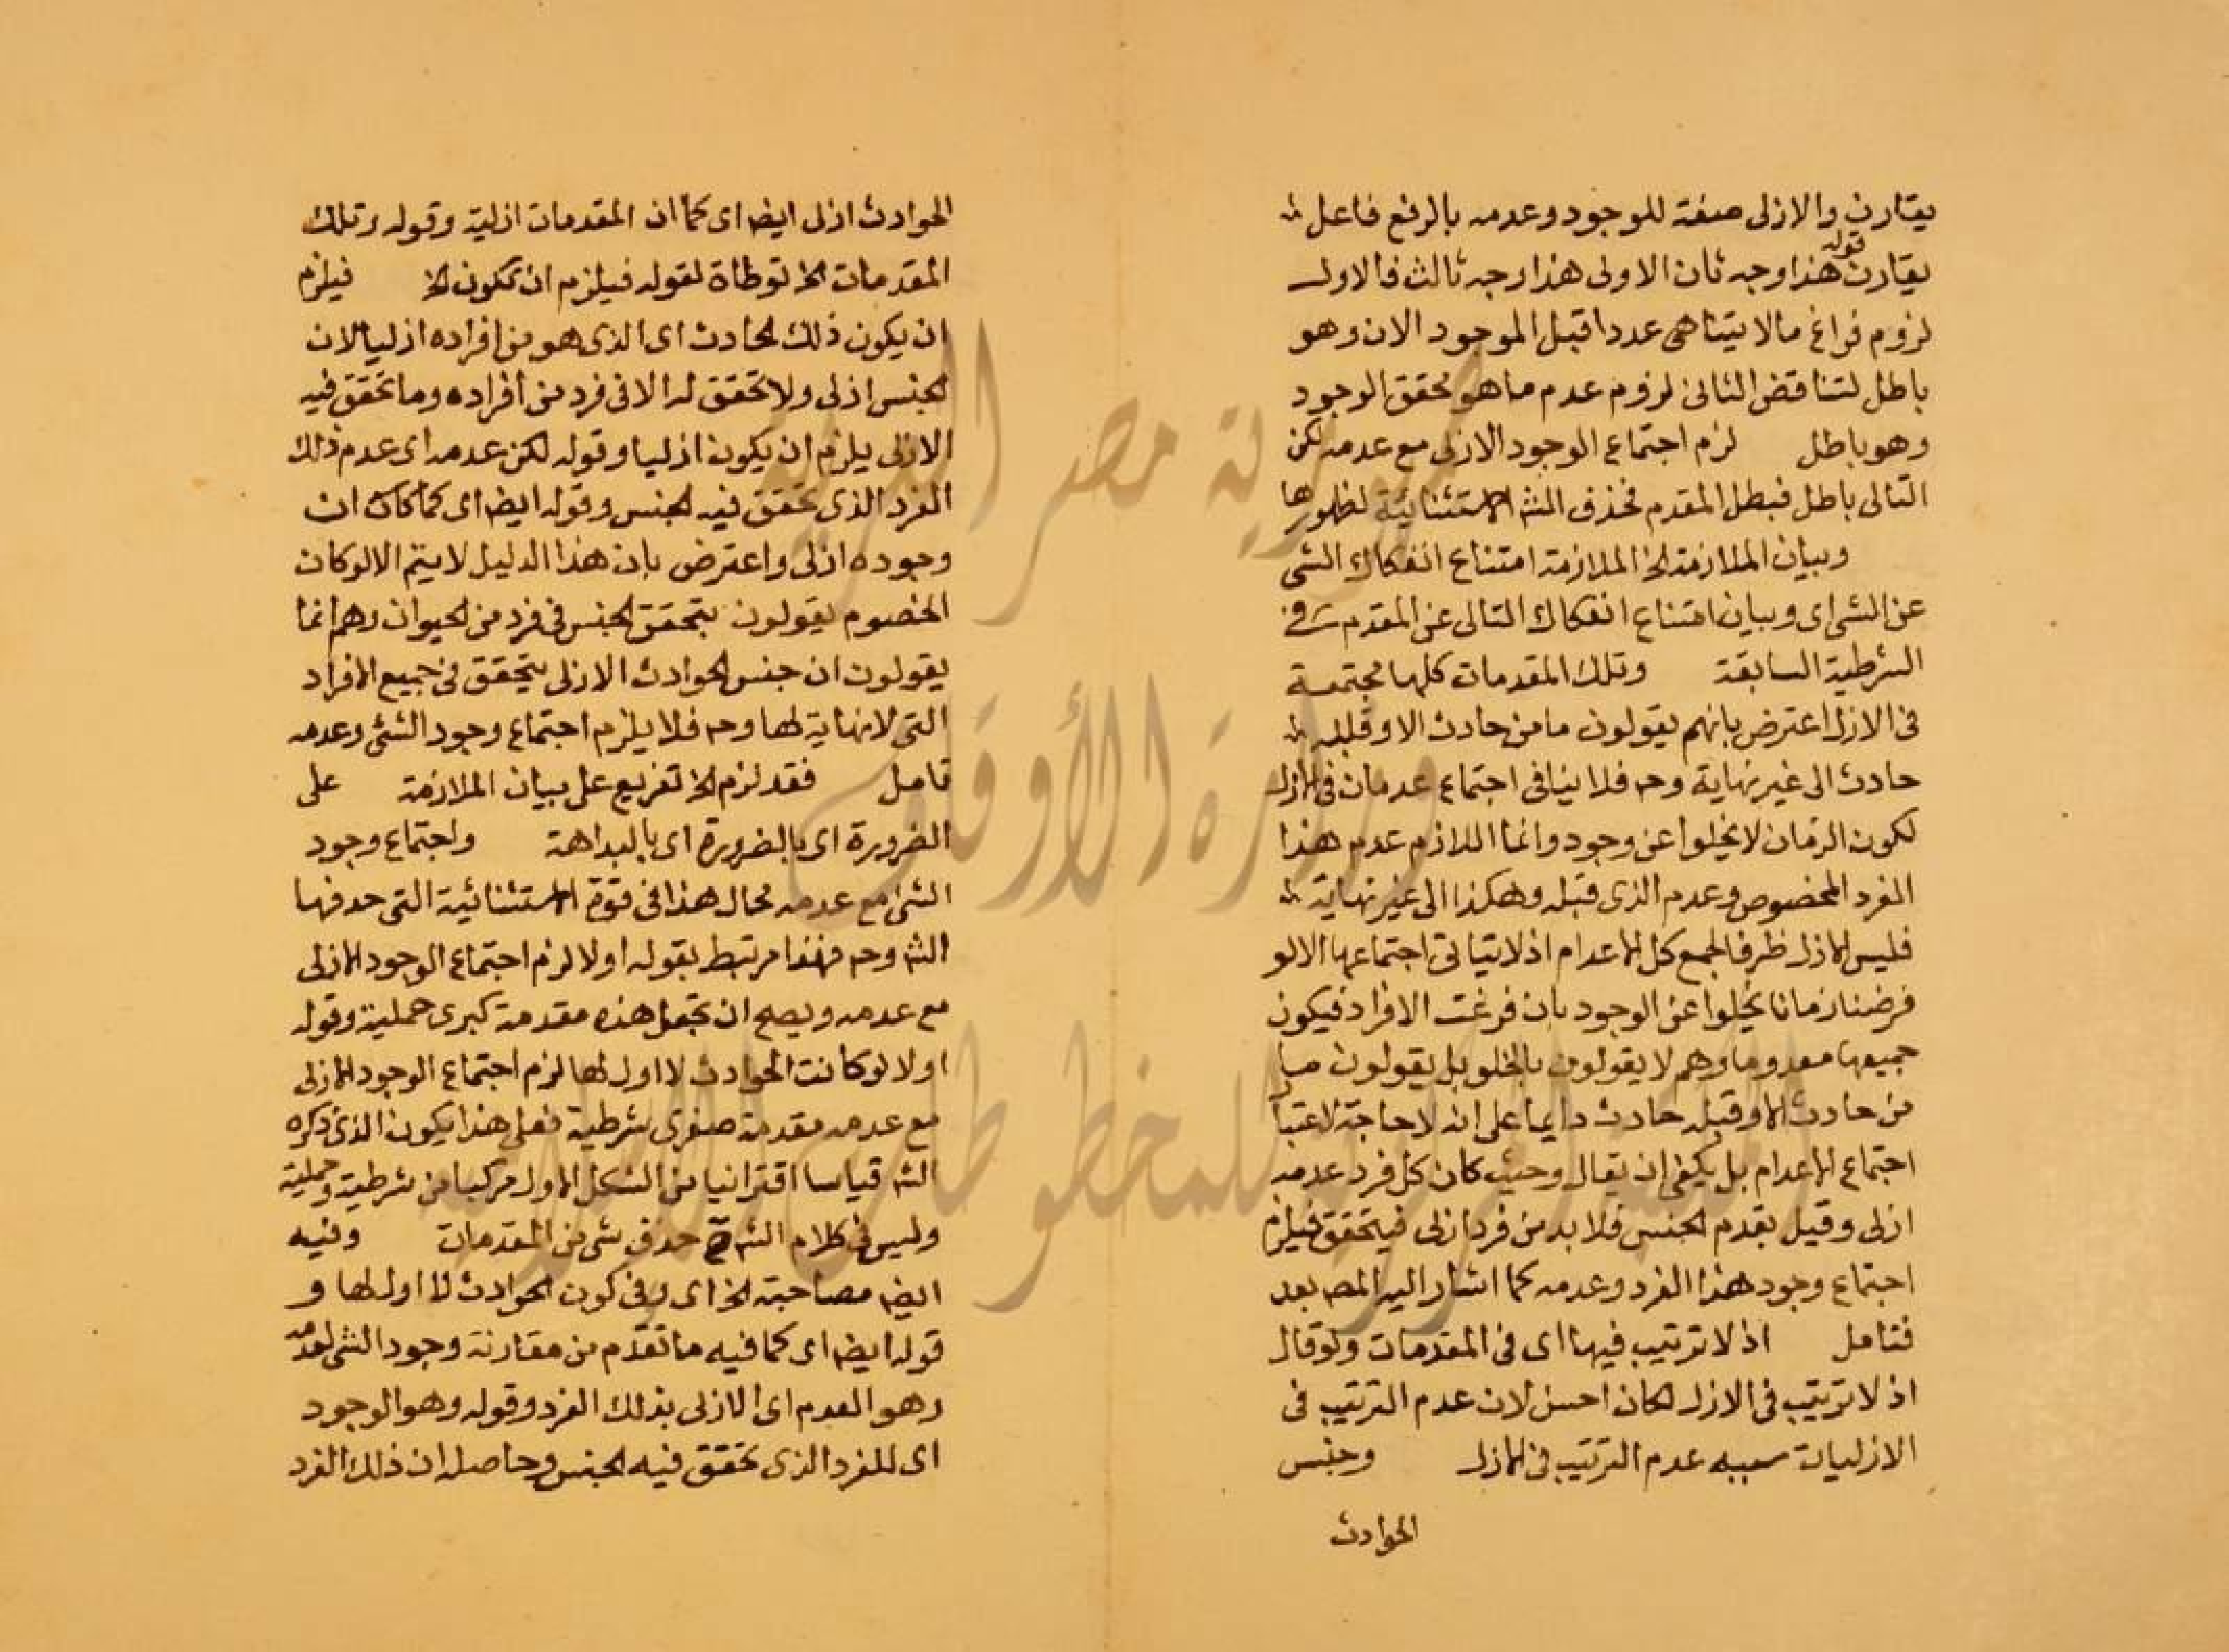 يقارن والازلى صفة للوجود وعدمه بالرفع فاعل
يقارن قوله هذا وجه ثان الاولى هذا وجه ثالث فالاول
لزوم فراغ مالا يتناهى عددا قبل الموجود الان وهو
باطل لتناقض الثانى لزوم عدم ما هو محقق الوجود
وهو باطل لزم اجتماع الوجود الازلى مع عدمه لكن
التالى باطل فبطل المقدم فحذف الش الاستثنائية لظهورها
وبيان الملازمة الخ الملازمة امتناع انفكاك الشى
عن الشى اى وبيان امتناع انفكاك التالى عن المقدم فى
الشرطية السابقة وتلك المقدمات كلها مجتمعة
فى الازل اعترض بانهم يقولون ما من حادث الا وقبله
حادث الى غير نهاية وح فلا ينافى اجتماع عدمات فى الازل
لكون الزمان لا يخلوا عن وجود وانما اللازم عدم هذا
الفرد المخصوص وعدم الذى قبله وهكذا الى غير نهاية
فليس الازل ظرفا لجمع كل الاعدام اذ لا يتاتى اجتماعها الا لو
فرضنا زمانا يخلوا عن الوجود بان فرغت الافراد فيكون
جميعها معدوما وهم لا يقولون بالخلو بل يقولون ما
من حادث الا وقبله حادث دايما على انه لا حاجة لاعتبار
اجتماع الاعدام بل يكفى ان يقال وحيث كان كل فرد عدمه
ازلى وقيل بقدم الجنس فلا بد من فرد ازلى فيتحقق فيلزم
اجتماع وجود هذا الفرد وعدمه كما اشار اليه المص بعد
فتامل اذ لا ترتيب فيها اى فى المقدمات ولو قال
اذ لا ترتيب فى الازل لكان احسن لان عدم الترتيب فى
الازليات سببه عدم الترتيب فى الازل وجنس
الحوادث
الحوادث ازلى ايض اى كما ان المقدمات ازلية وقوله وتلك
المقدمات الخ توطاة لقوله فيلزم ان تكون الخ فيلزم
ان يكون ذلك الحادث اى الذى هو من افراده ازليا لان
الجنس ازلى ولا تحقق له الا فى فرد من افراده وما تحقق فيه
الازلى يلزم ان يكون ازليا وقوله لكن عدمه اى عدم ذلك
الفرد الذى تحقق فيه الجنس وقوله ايض اى كما كان ان
وجوده ازلى واعترض بان هذا الدليل لا يتم الا لو كان
الخصوم يقولون بتحقق الجنس فى فرد من الحيوان وهم انما
يقولون ان جنس الحوادث الازلى يتحقق فى جميع الافراد
التى لا نهاية لها وح فلا يلزم اجتماع وجود الشئ وعدمه
تامل فقد لزم الخ تفريع على بيان الملازمة على
الضرورة اى بالضرورة اى بالبداهة واجتماع وجود
الشئ مع عدمه محال هذا فى قوة الاستثنائية التى حدفها
الش وح فهذا مرتبط بقوله اولا لزم اجتماع الوجود الازلى
مع عدمه ويصح ان تجعل هذه مقدمة كبرى حملية وقوله
اولا لو كانت الحوادث لا اول لها لزم اجتماع الوجود الازلى
مع عدمه مقدمة صغرى شرطية فعلى هذا يكون الذى ذكره
الش قياسا اقترانيا من الشكل الاول مركبا من شرطية وحملية
وليس فى كلام الش ح حذف شى من المقدمات وفيه
ايض مصاحبة الخ اى وفى كون الحوادث لا اول لها و
قوله ايض اى كما فيه ما تقدم من مقارنة وجود الشى لعدمه
وهو العدم اى الازلى بذلك الفرد وقوله وهو الوجود
اى للفرد الذى تحقق فيه الجنس وحاصله ان ذلك الفرد